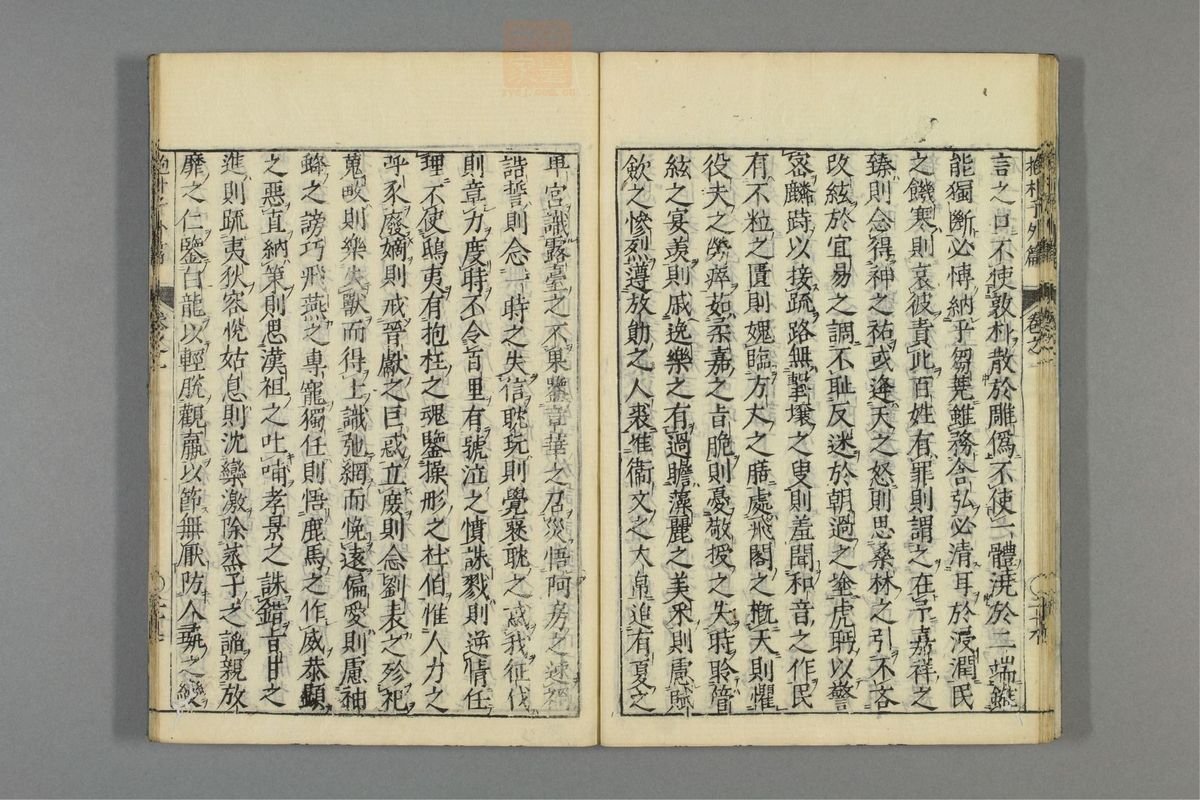 抱朴子外篇 卷之一
言之口不使敦朴散於雕僞不使一體澆於二端雖
能獨斷必博納乎芻蕘雖務含弘必清耳於浸潤民
之饑寒則哀彼責此百姓有罪則謂之在予嘉祥之
臻則念得神之祐或逢天之怒則思桑林之引不吝
改絃於宜易之調不耻反迷於朝過之塗虎眄以警
密麟跱以接疏路無擊壤之叟則羞聞和音之作民
有不粒之匱則媿臨方丈之膳處飛閣之概天則懼
役夫之勞瘁茹柔嘉之旨脆則憂敬授之失時聆管
絃之宴羨則戚逸樂之有過瞻藻麗之美采則慮賦
歛之慘烈遵放勛之人裘准衞文之大帛追有夏之
卑宮識露臺之不果鑒章華之召災悟阿房之速禍
誥誓則念一時之失信耽玩則覺褒耽之惑我征伐
則章力度時不令百里有號泣之憤誅戮則逆情任
理不使鴟夷有抱枉之魂鑒操形之杜伯惟人力之
乎豕廢嫡則戒晉獻之巨惑立庶則念劉表之殄祀
蒐畋則樂失獸而得士識弛網而恱遠偏愛則慮袖
蜂之謗巧飛燕之專寵獨任則悟鹿馬之作威恭顯
之惡直納策則思漢祖之吐哺孝景之誅錯旨甘之
進則疏夷狄容恱姑息則沈欒激除蒸子之諂親放
麛之仁鑒白龍以輕脫觀羸以節無厭防人彘之變